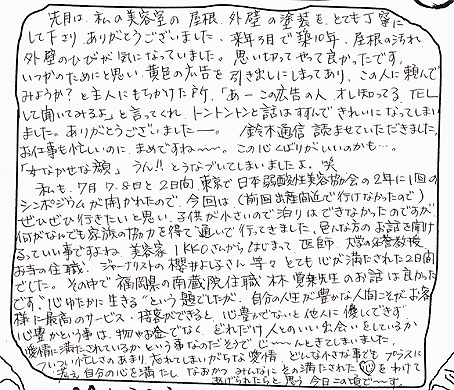 先月は、私の美容室の屋根、外壁の塗装を、とても丁寧に
して下さりありがとうございました。来年3月で築10年、屋根の汚れ
外壁のひびが気になっていました。思い切ってやって良かったです。
いつかのためにと思い、黄色の広告を引き出しにしまってあり、この人に頼んで
みようか?と主人にもちかけた所、「あーこの広告の人、オレ知ってる、TEL
して聞いてみるよ」と言ってくれ、トントントンと話はすすんできれいになってしまい
ました。ありがとうございましたー。鈴木通信読ませていただきました。
お仕事も忙しいのに、まめですねー〜。この心くばりがいいのかも…。
「女なかせな顔」うん!!とうなづいてしまいましたよ。笑
私も、7月7.8日と2日間東京で日本弱酸性美容協会の2年に1回の
シンポジウムが開かれたので、今回は(前回出産間近で行けなかったので)
ぜひぜひ行きたいと思い、子供が小さいので泊りはできなかったのですが
何がなんでも家族の協力を得て通いで行ってきました。色んな方のお話を聞け
るっていい事ですよね、美容家IKKOさんからはじまって医師、大学の名誉教授、
お寺の住職、ジャーナリストの櫻井よし子さん等々とても心が満たされた2日間
でした。その中で福岡県の南蔵院住職 林 覚乗先生のお話は良かった
です。"心ゆたかに生きる"という題でしたが、自分の人生が豊かな人間こそがお客
様に最高のサービス・接客ができると、心豊かでないと他人に優しくできず、
心豊かという事は、物やお金でなく、どれだけ人とのいい出会いをしているか
愛情に満たされているかという事なのだそうで じ〜〜んときてしまいました。
ついつい忙しさのあまり、忘れてしまいがちな愛情、どんな小さな事もプラスに
考え自分の心を満たし、なおかつみんなにその満たされた心をわけて
あげられたらと思う今日この頃で〜す